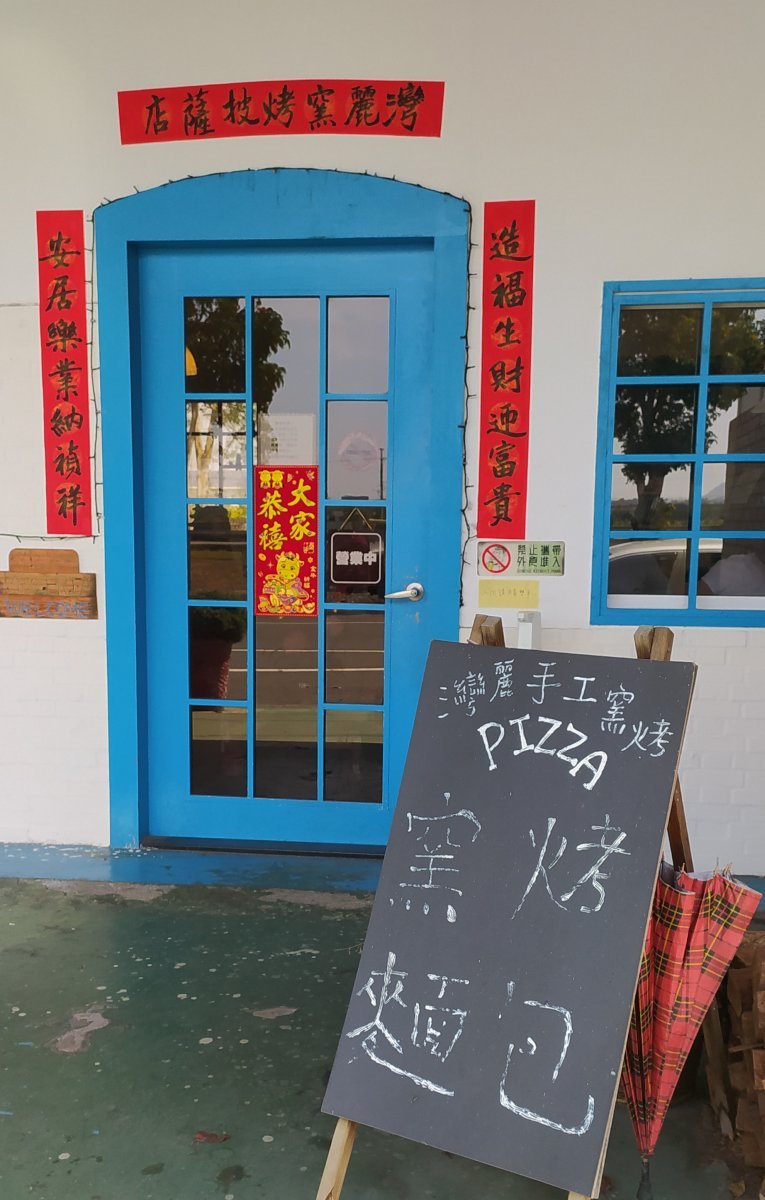 灣麗窯烤披薩店
造福生財迎富貴
安居樂業納禎祥
大家
恭禧
營業中
禁止攜帶
外食進入
WELCOME
灣麗手工窯烤
PIZZA
窯烤
麵包